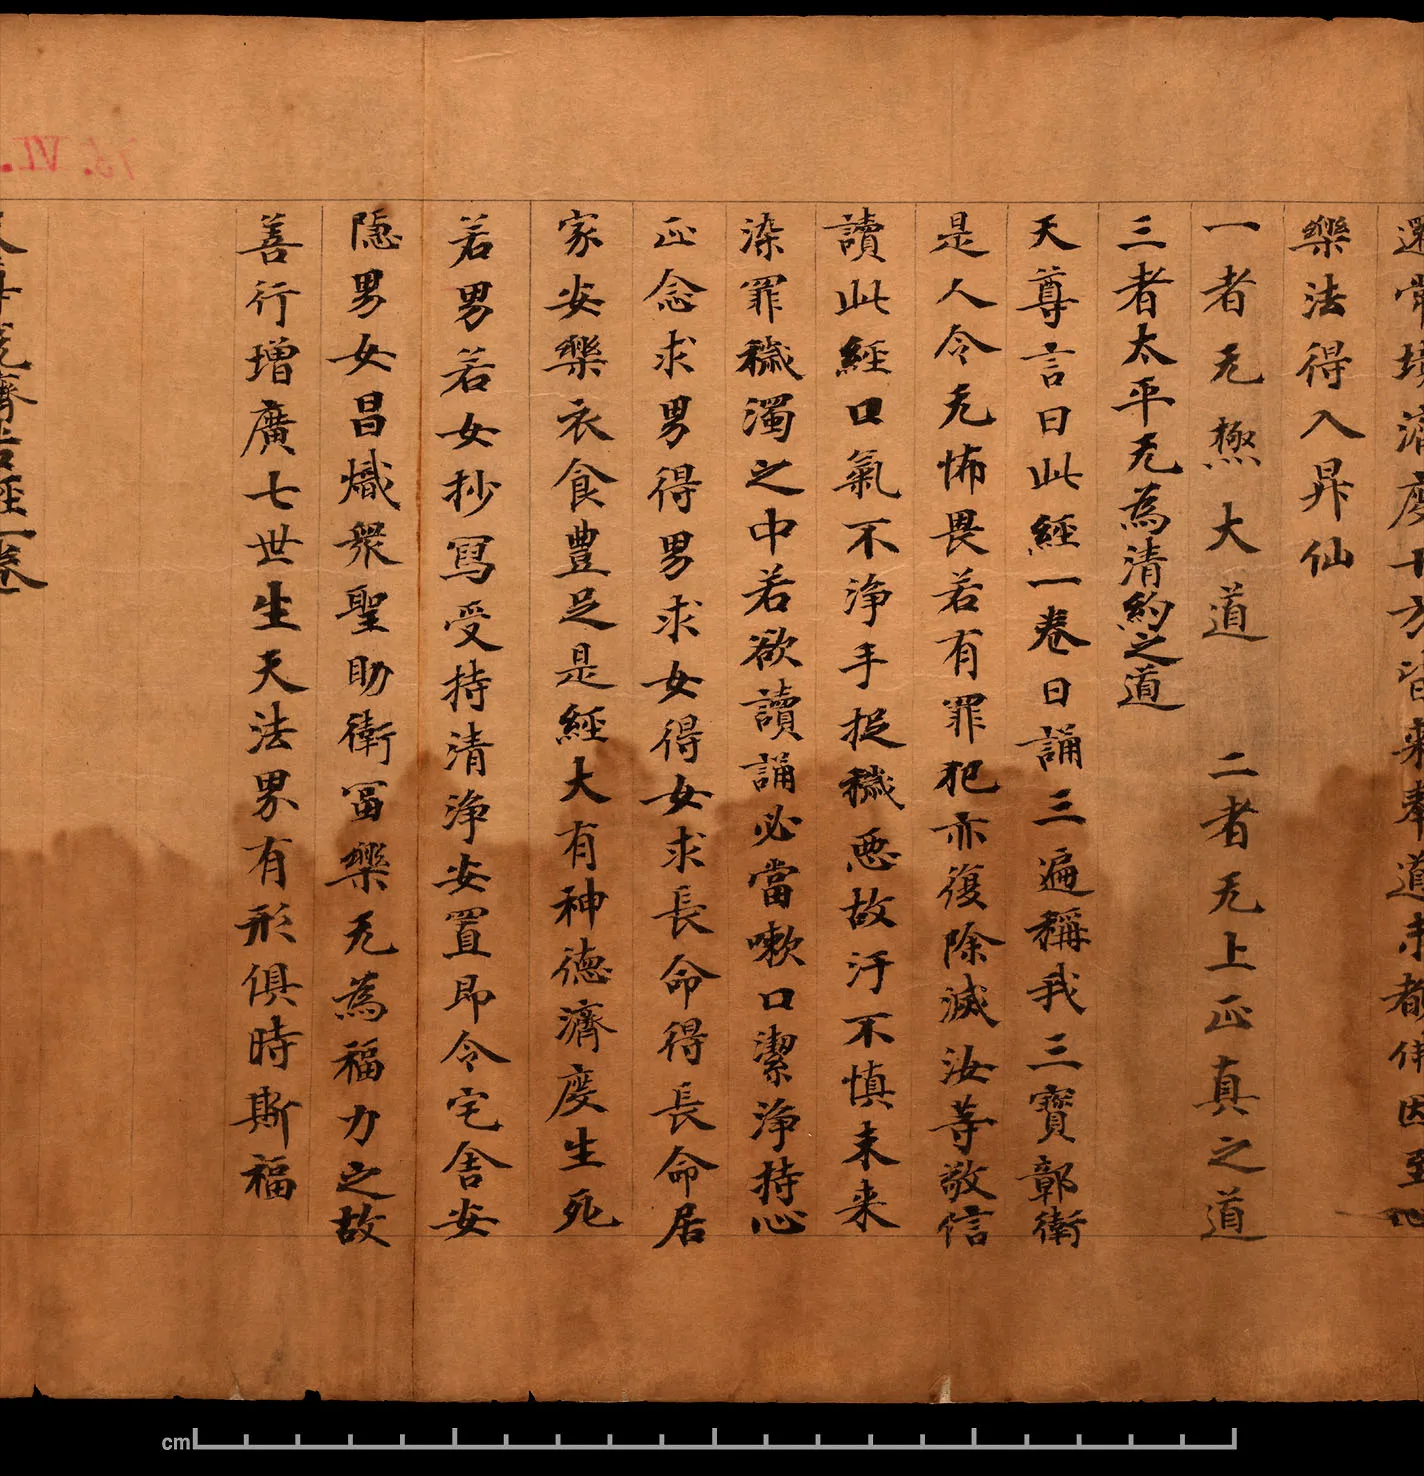 還 濟度十方皆来奉道 者 因至心
樂法得入昇仙
一者无極大道　二者无上正真之道
三者太平无為清約之道
天尊言曰此經一卷日誦三遍稱我三寶鄣衛
是人令无怖畏若有罪犯亦復除滅汝等敬信
讀此經口氣不淨手捉穢惡故汙不慎未来
染罪穢濁之中若欲讀誦必當嗽口潔淨持心
正念求男得男求女得女求長命得長命居
家安樂衣食豊足是經大有神德濟度生死
若男若女抄寫受持清淨安置即令宅舍安
隱男女昌熾衆聖助衛冨樂无為福力之故
善行增廣七世生天法界有形俱時斯福
濟苦經一卷
75. VI.
cm